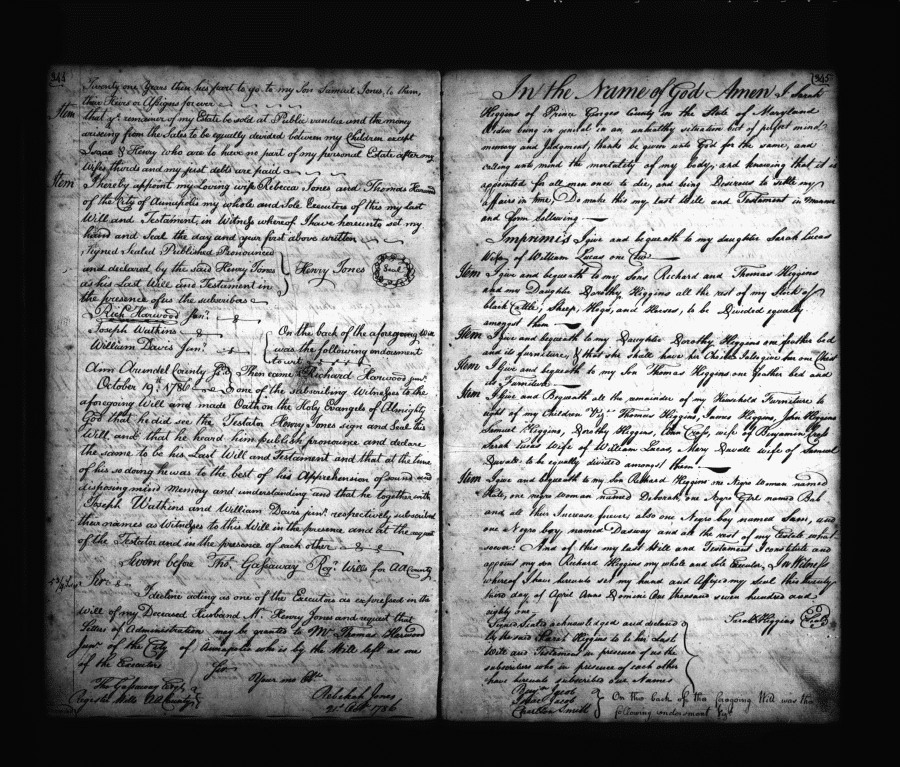 344
Twenty one Years then his part to go to my Son Samuel Jones, to them,
their Heirs or Assigns forever
Item
that ye. remainer of my Estate be sold at Public vendue and the money
arising from the Sales to be equally divided between my Children except
Isaac & Henry who are to have no part of my personal Estate after my
Wifes thirds and my just debts are paid
Item
I hereby appoint my Loving wife Rebecca Jones and Thomas Harwood
of the City of Annapolis my whole and Sole Executors of this my last
Will and Testament, in Witness whereof I have hereunto set my
hand and Seal the day and year first above written
Signed Sealed Published Pronounced
and declared by the said Henry Jones
as his Last Will and Testament in
the presence of us the subscribers
Henry Jones Seal
Richd. Harwood Junr.
Joseph Watkins
William Davis Junr.
On the back of the aforegoing Will
was the following endorsment
to wit
Ann Arundel County Then came Richard Harwood junr.
October 19th. 1786 one of the subscribing Witnesses to the
aforegoing Will and made Oath on the Holy Evangels of Almighty
God that he did see the Testator Henry Jones sign and Seal this
Will, and that he heard him publish pronounce and declare
the same to be his Last Will and Testament and that at the time
of his so doing he was to the best of his Apprehension of sound and
disposing mind Memory and understanding and that he together with
Joseph Watkins and William Davis junr. respectively subscribed
their names as Witnesses to this Will in the presence and at the request
of the Testator and in the presence of each other
Sworn before Tho. Gassaway Regr. Wills for AA County
I decline acting as one of the Executors as expressed in the
Will of my Deceased Husband Mr. Henry Jones and request that
Letters of Administration may be granted to Mr. Thomas Harwood
Junr. of the City of Annapolis who is by the Will left as one
of the Executors
Your
Rebekah Jones
21st. Octr. 1786
Tho Gassaway Esqr.
Register Wills AA County
345
In the Name of God Amen I Sarah
Higgins of Prince Georges County in the State of Maryland
Widow being in general in an unhealthy situation but of perfect mind
memory and Judgment, thanks be given unto God for the same, and
calling unto mind the mortality of my body, and knowing that it is
appointed for all men once to die, and being Desireous to settle my
affairs in time, Do make this my last Will and Testament in manner
and form following
Imprimis I give and bequeath to my daughter Sarah Lucas
Wife of William Lucas one
Item I give and bequeath to my Sons Richard and Thomas Higgins
and my Daughter Dorothy Higgins all the rest of my Stock of
black Cattle, Sheep, Hogs, and Horses, to be Divided equally
amongst them
Item I give and bequeath to my Daughter Dorothy Higgins one feather bed
and its furniture, & that she shall have
Item I give and bequeath to my Son Thomas Higgins one feather bed and
its Furniture
Item I give and Bequeath all the remainder of my Household Furniture to
eight of my Children Vizt. Thomas Higgins, James Higgins, John Higgins
Samuel Higgins, Dorothy Higgins, Cross, wife of Benjamin Cross
Sarah Lucas Wife of William Lucas, Mary Duvale wife of Samuel
Duvale to be equally divided amongst them
Item I give and bequeath to my Son Richard Higgins one Negro Woman named
Kate, one negro woman named Deborah one Negro Girl named Bab
and all their Increase forever, also one Negro boy named Sam, and
one a Negro boy named and all the rest of my Estate what
soever: And of this my last Will and Testament I constitute and
appoint my son Richard Higgins my whole and Sole Executor, In Witness
whereof I have hereunto set my hand and Affixed my Seal this twenty
third day of April Anno Domini One thousand seven hundred and
eighty one
Sarah Higgins Seal
Signed Sealed acknowledged and declared
by the said Sarah Higgins to be her Last
Will and Testament in presence of us the
subscribers who in presence of each other
have hereunto subscribed our Names
Benjn. Jacob
Isaac Jacob
Charlton Smith
On the back of the foregoing Will was the
following endorsment Vizt.